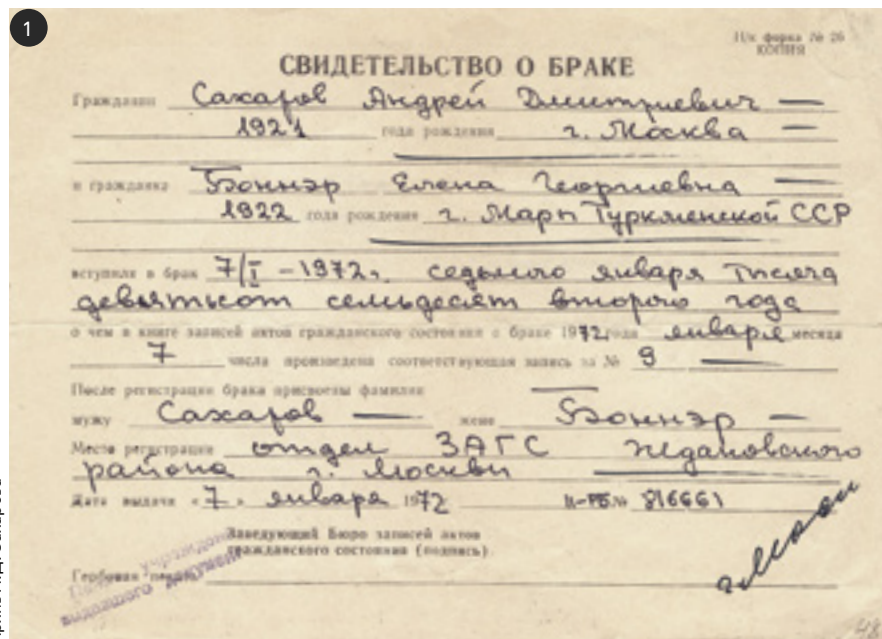 1
КОПИЯ
СВИДЕТЕЛЬСТВО О БРАКЕ
Гражданин Сахаров Андрей Дмитриевич —
1921 года рождения г. Москва —
и гражданка Боннэр Елена Георгиевна —
1922 года рождения г. Мары Туркменской ССР
вступили в брак 7/I – 1972г. седьмого января тысяча
девятьсот семьдесят второго года
о чем в книге записей актов гражданского состояния о браке 1972 года января месяца
7 числа произведена соответствующая запись за № 9 —
После регистрации брака присвоены фамилии
мужу Сахаров — жене Боннэр —
Место регистрации отдел ЗАГС Ждановского
района г. Москвы
Дата выдачи «7» января 1972 II-РБ № 816661
Заведующий Бюро записей актов
гражданского состояния (подпись)
Гербовая
выдавшего документ
48